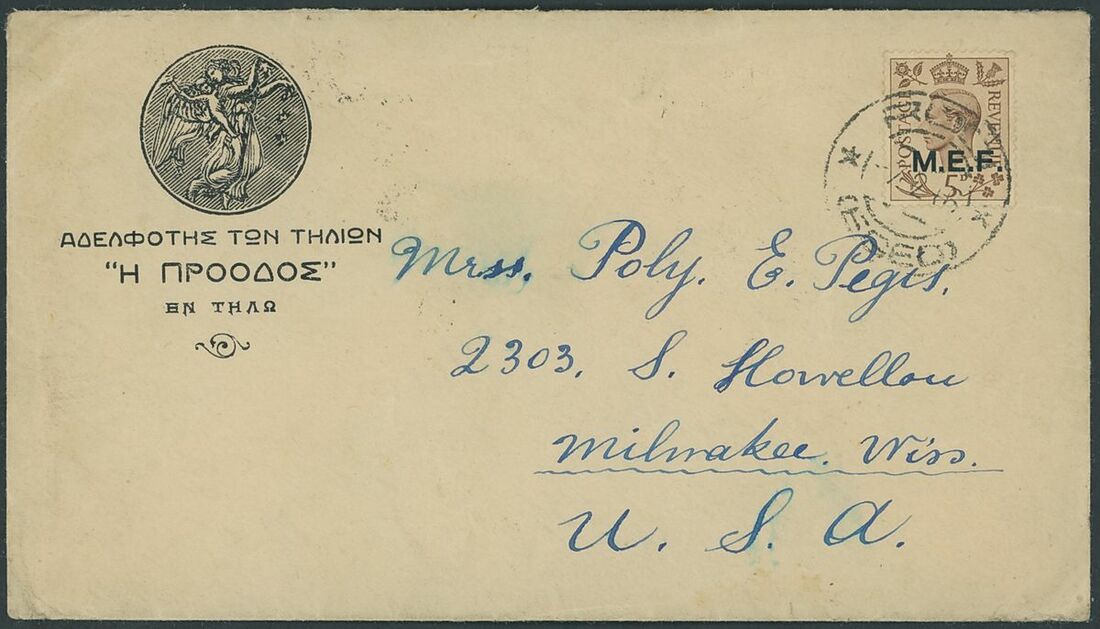 ΑΔΕΛΦΟΤΗΣ ΤΩΝ ΤΗΛΙΩΝ
"Η ΠΡΟΟΔΟΣ"
ΕΝ ΤΗΛΩ
POSTAGE REVENUE
M.E.F.
5D
(EGEO)
Mrss. Poly. E. Pegis.
2303. S. Howellou
Milwakee. Wiss.
U. S. A.